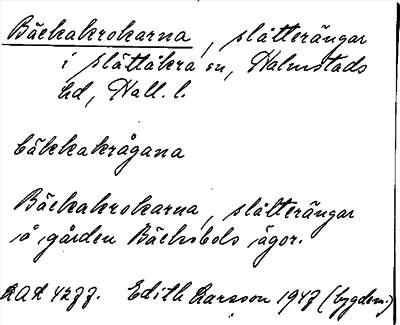 Bäckakrokarna, slåtterängar
i Slättåkra sn, Halmstads
hd, Hall. l.
bäkkakrågana
Bäckakrokarna, slåtterängar
å gården Bäcksbols ägor.
Edith Larsson 1947 (bygdem.)